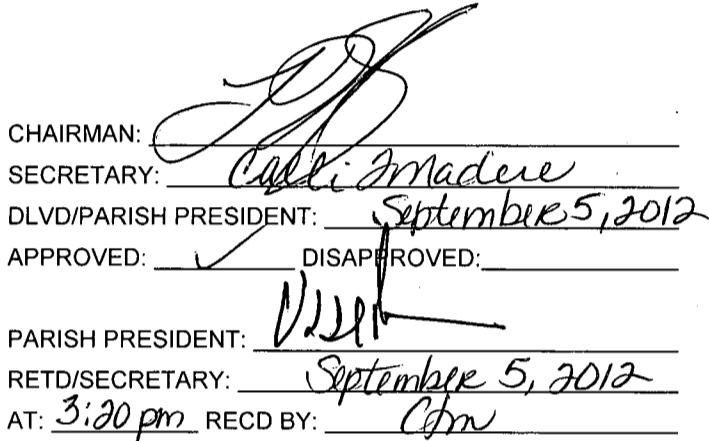 CHAIRMAN:
SECRETARY: Calli Madere
DLVD/PARISH PRESIDENT: September 5, 2012
APPROVED: ✓ DISAPPROVED:
PARISH PRESIDENT:
RETD/SECRETARY: September 5, 2012
AT: 3:20 pm RECD BY: Cfm